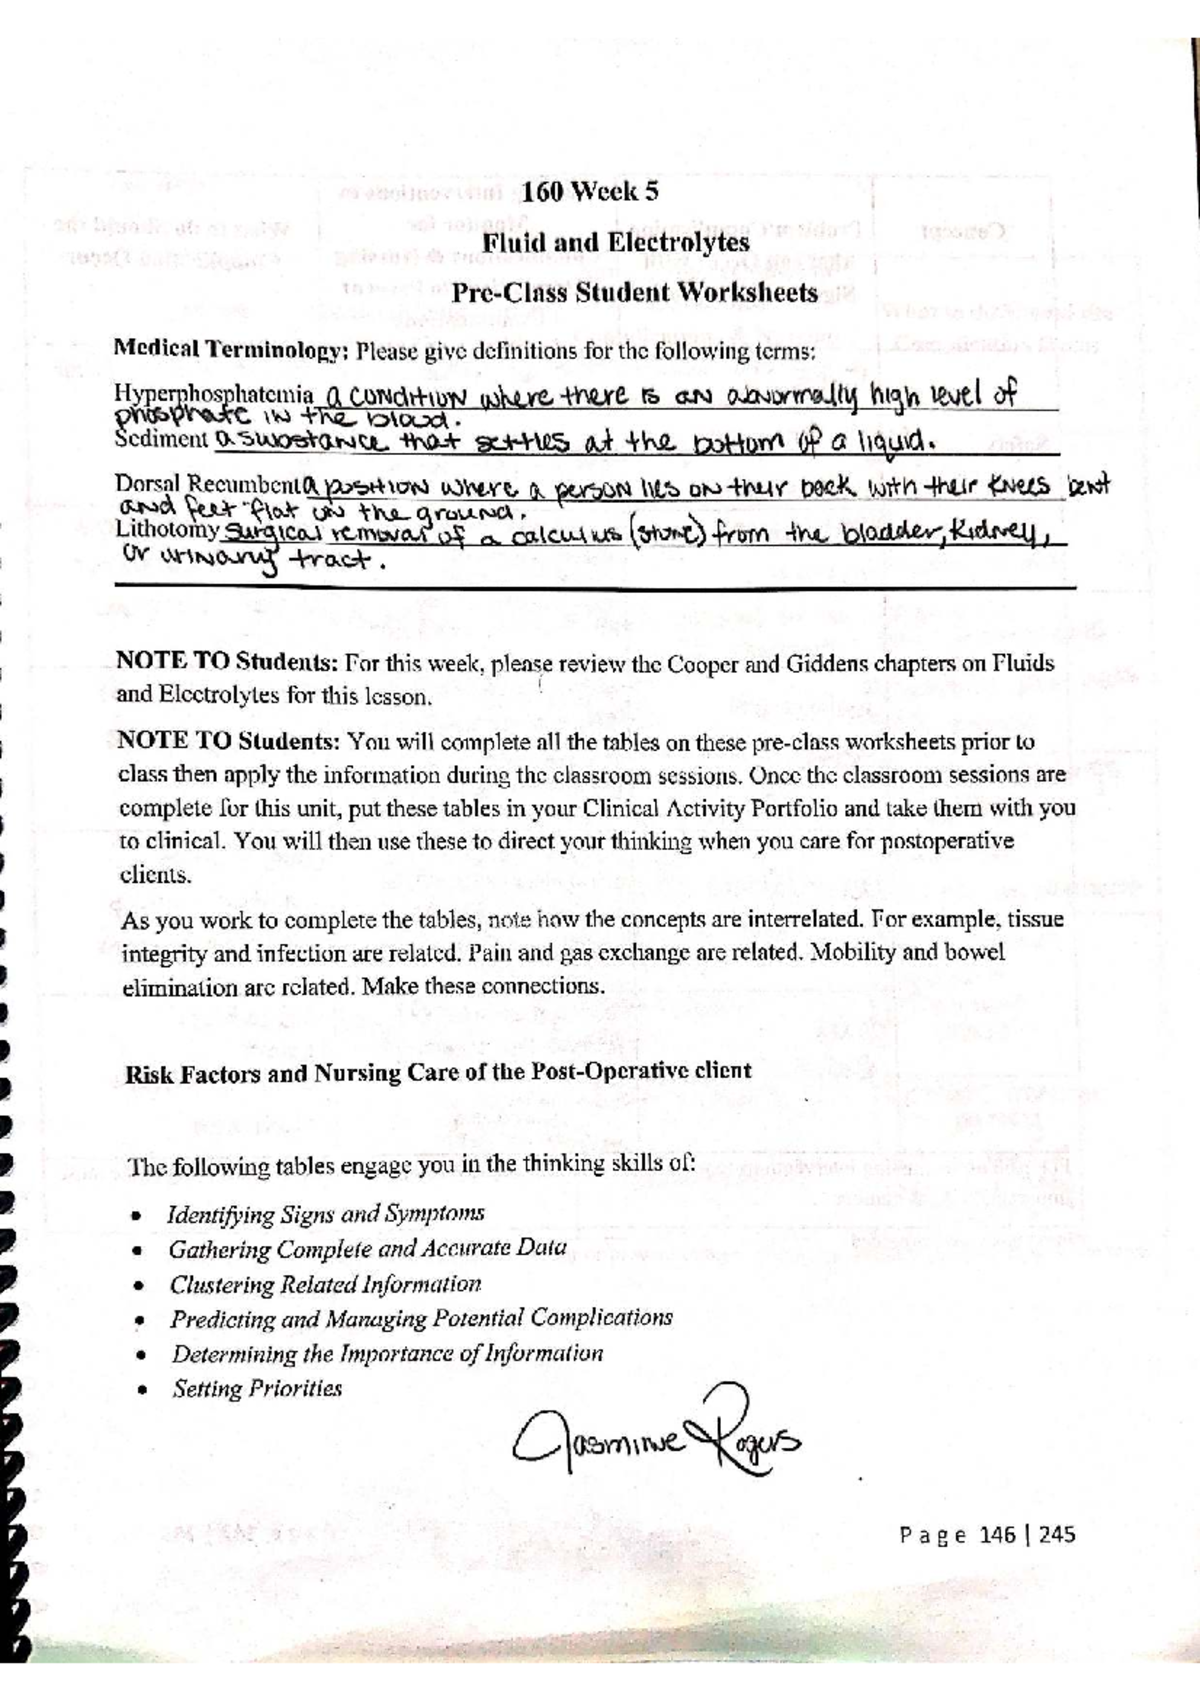 160 Week 5
Fluid and Electrolytes
Pre-Class Student Worksheets
Medical Terminology: Please give definitions for the following terms:
Hyperphosphatemia a condition where there is an abnormally high level of
phosphate in the blood.
Sediment a substance that settles at the bottom of a liquid.
Dorsal Recumbent a position where a person lies on their back with their knees bent
and feet flat on the ground.
Lithotomy surgical removal of a calculus (stone) from the bladder, kidney,
or urinary tract.
NOTE TO Students: For this week, please review the Cooper and Giddens chapters on Fluids
and Electrolytes for this lesson.
NOTE TO Students: You will complete all the tables on these pre-class worksheets prior to
class then apply the information during the classroom sessions. Once the classroom sessions are
complete for this unit, put these tables in your Clinical Activity Portfolio and take them with you
to clinical. You will then use these to direct your thinking when you care for postoperative
clients.
As you work to complete the tables, note how the concepts are interrelated. For example, tissue
integrity and infection are related. Pain and gas exchange are related. Mobility and bowel
elimination are related. Make these connections.
Risk Factors and Nursing Care of the Post-Operative client
The following tables engage you in the thinking skills of:
• Identifying Signs and Symptoms
• Gathering Complete and Accurate Data
• Clustering Related Information
• Predicting and Managing Potential Complications
• Determining the Importance of Information
• Setting Priorities
Jasmine Rogers
Page 146 | 245